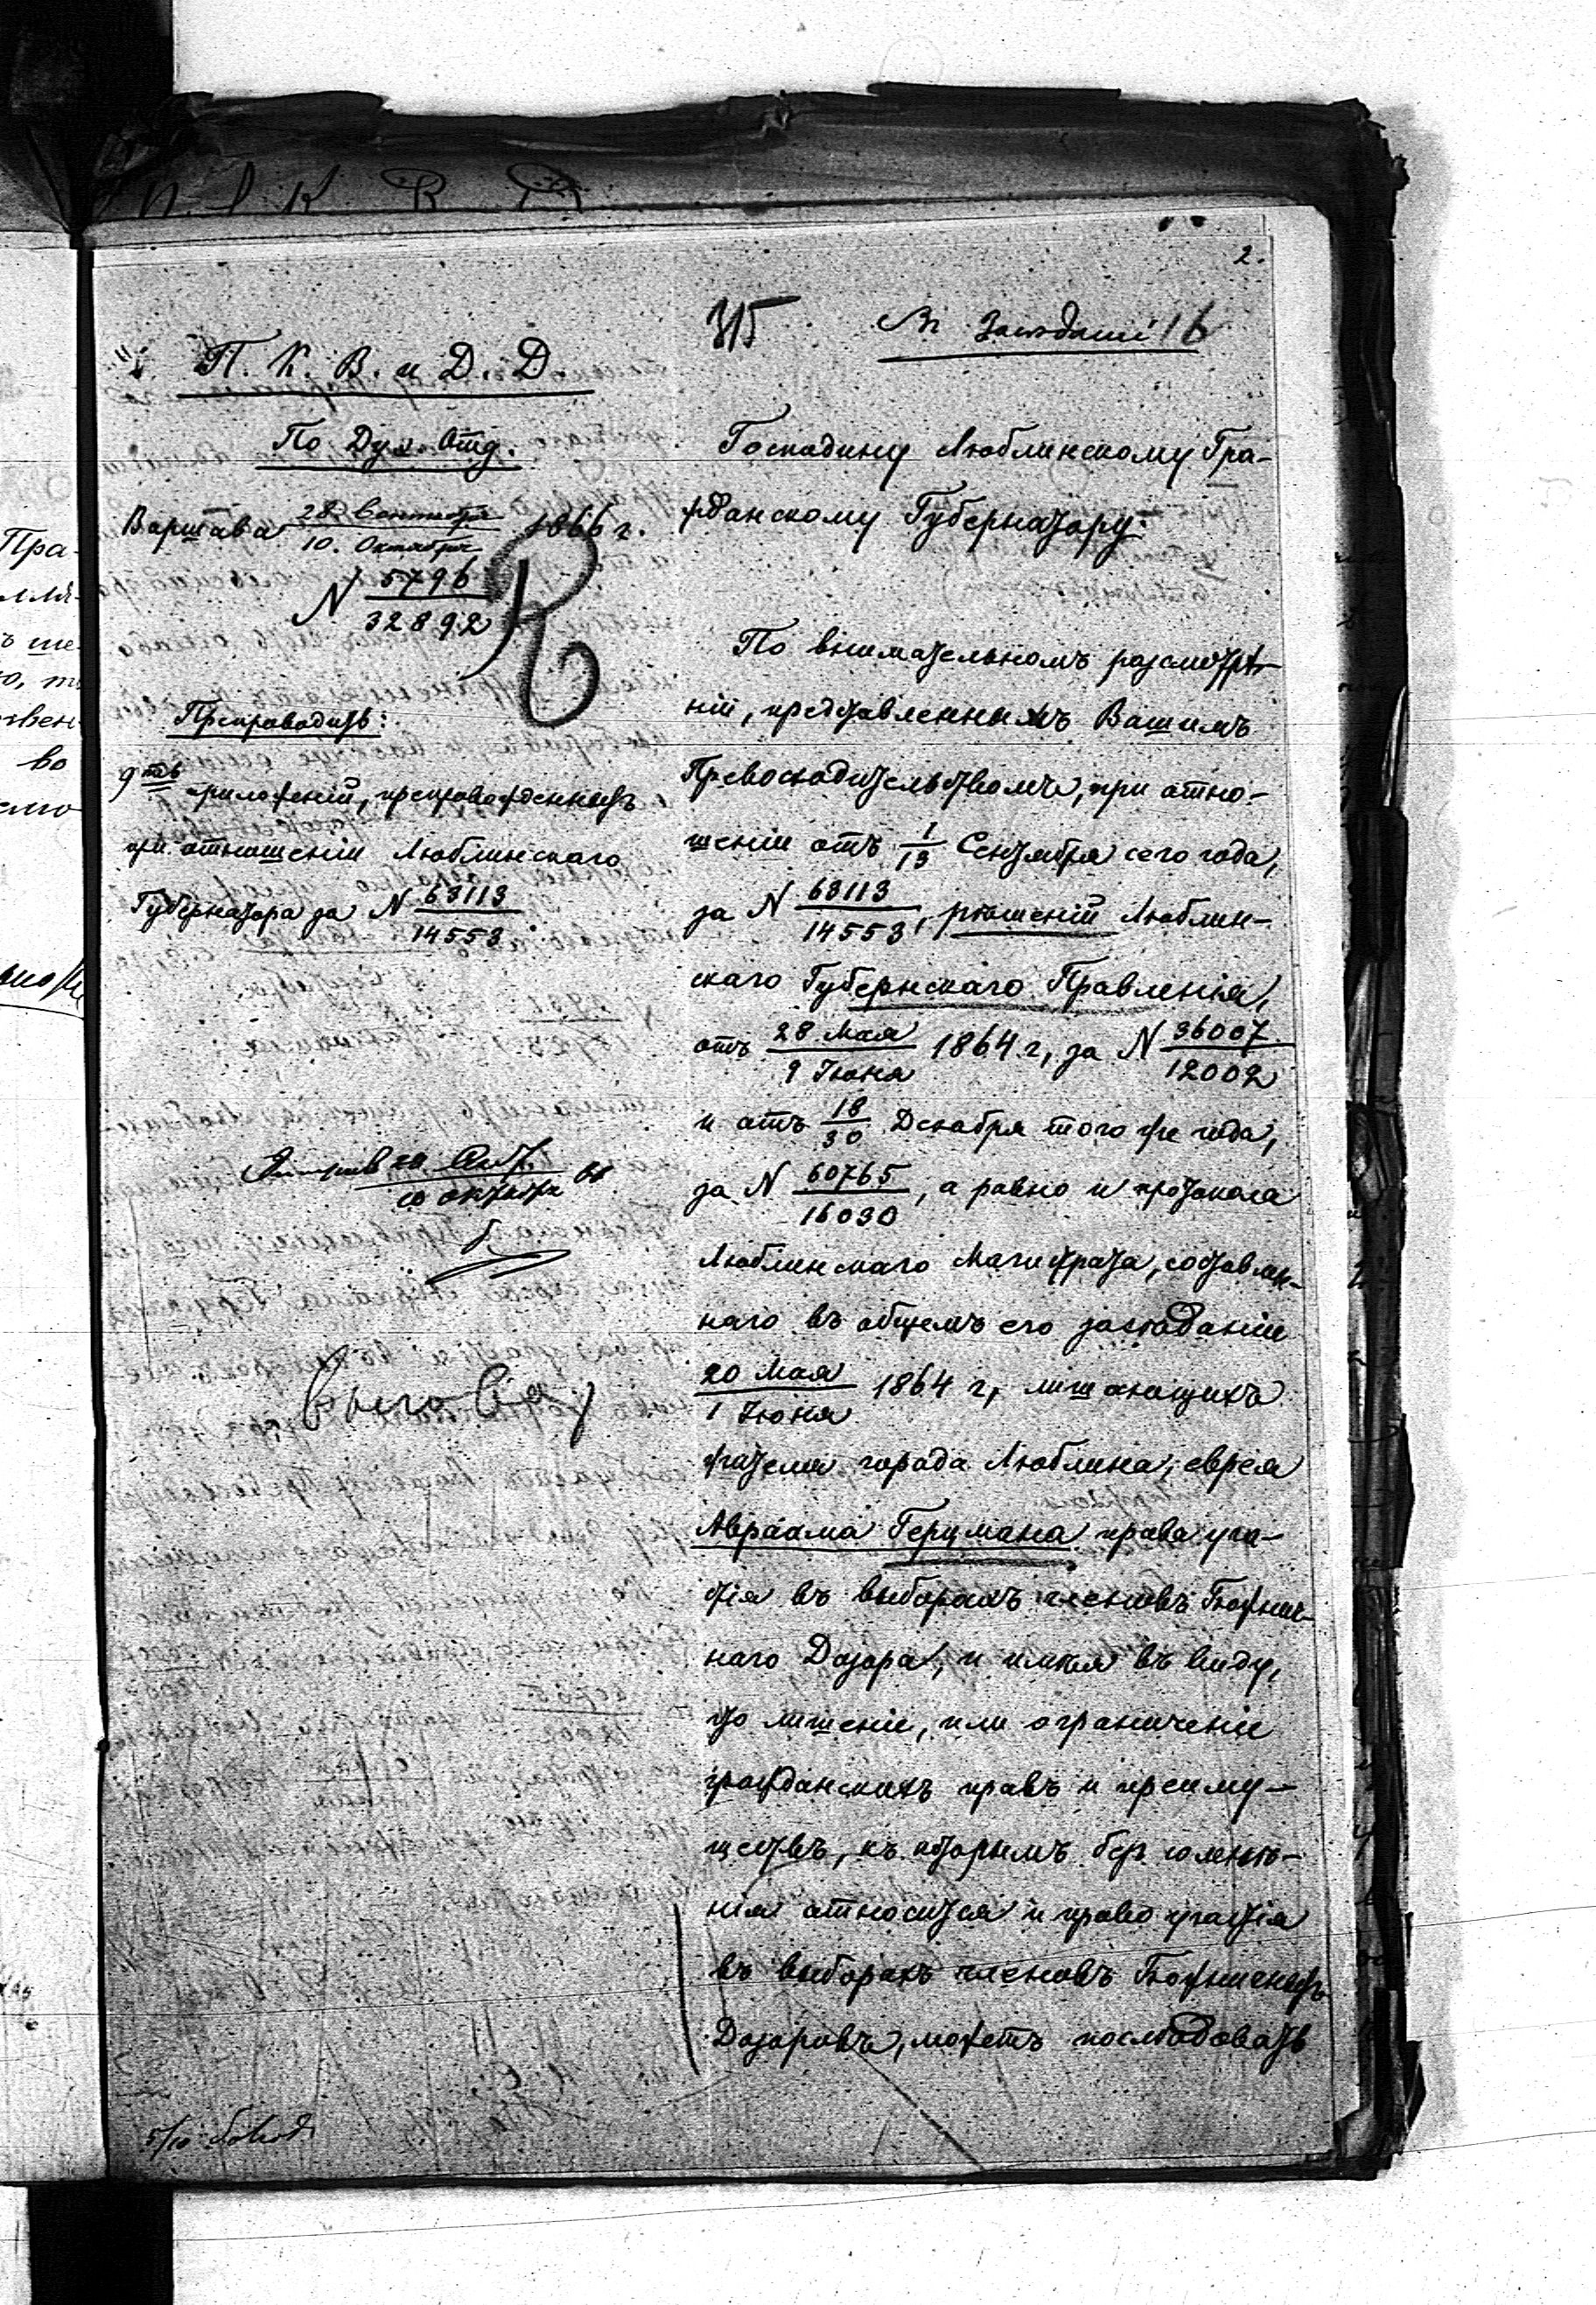 2.
315
Въ Засѣданіи 16
П. К. В. и Д. Д.
По Дух. Отд.
Варшава 28 Сентября / 10. Октября 1866 г.
N 5796 / 32892
Препроводить:
9ть приложеній, препровожденныхъ
при отношеніи Люблинскаго
Губернатора за N 63113 / 14553.
10 октября
5/10
Господину Люблинскому Гра-
жданскому Губернатору.
По внимательномъ разсмотрѣ-
ніи, представленныхъ Вашимъ
Превосходительствомъ, при отно-
шеніи отъ 1/13 Сентября сего года,
за N 63113 / 14553, рѣшеній Люблин-
скаго Губернскаго Правленія,
отъ 28 Мая / 9 Іюня 1864 г, за N 36007 / 12002
и отъ 18/30 Декабря того же года,
за N 60765 / 16030, а равно и протокола
Люблинскаго Магистрата, составлен-
наго въ общемъ его засѣданіи
20 Мая / 1 Іюня 1864 г, лишающихъ
жителя города Люблина, еврея
Авраама Герцмана права уча-
стія въ выборахъ членовъ Божнич-
наго Дозора, и имѣя въ виду,
что лишеніе, или ограниченіе
гражданскихъ правъ и преиму-
ществъ, къ которымъ безъ сомнѣ-
нія относится и право участія
въ выборахъ членовъ Божничныхъ
Дозоровъ, можетъ послѣдовать